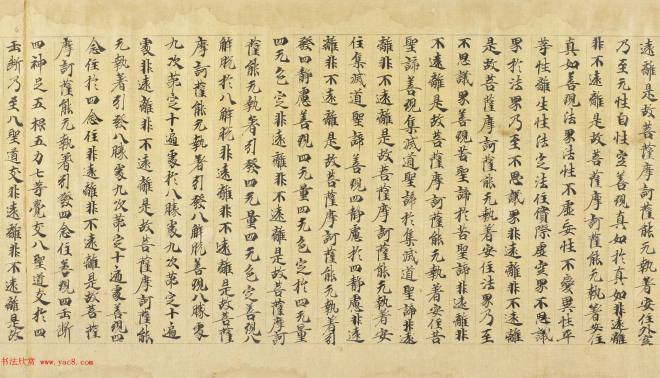 遠離是故菩薩摩訶薩能无執著安住外空
乃至无性自性空善現真如於真如非遠離
非不遠離是故菩薩摩訶薩能无執著安住
真如善現法界法性不虛妄性不變異性平
等性離生性法定法住實際虛空界不思議
界於法界乃至不思議界非遠離非不遠離
是故菩薩摩訶薩能无執著安住法界乃至
不思議界善現苦聖諦於苦聖諦非遠離非
不遠離是故菩薩摩訶薩能无執著安住苦
聖諦善現集滅道聖諦於集滅道聖諦非遠
離非不遠離是故菩薩摩訶薩能无執著安
住集滅道聖諦善現四靜慮於四靜慮非遠
離非不遠離是故菩薩摩訶薩能无執著引
發四靜慮善現四无量四无色定於四无量
四无色定非遠離非不遠離是故菩薩摩訶
薩能无執著引發四无量四无色定善現八
解脫於八解脫非遠離非不遠離是故菩薩
摩訶薩能无執著引發八解脫善現八勝處
九次第定十遍處於八勝處九次第定十遍
處非遠離非不遠離是故菩薩摩訶薩能
无執著引發八勝處九次第定十遍處善現四
念住於四念住非遠離非不遠離是故菩薩
摩訶薩能无執著引發四念住善現四正斷
四神足五根五力七等覺支八聖道支於四
正斷乃至八聖道支非遠離非不遠離是故
书法欣赏
www.yac8.com